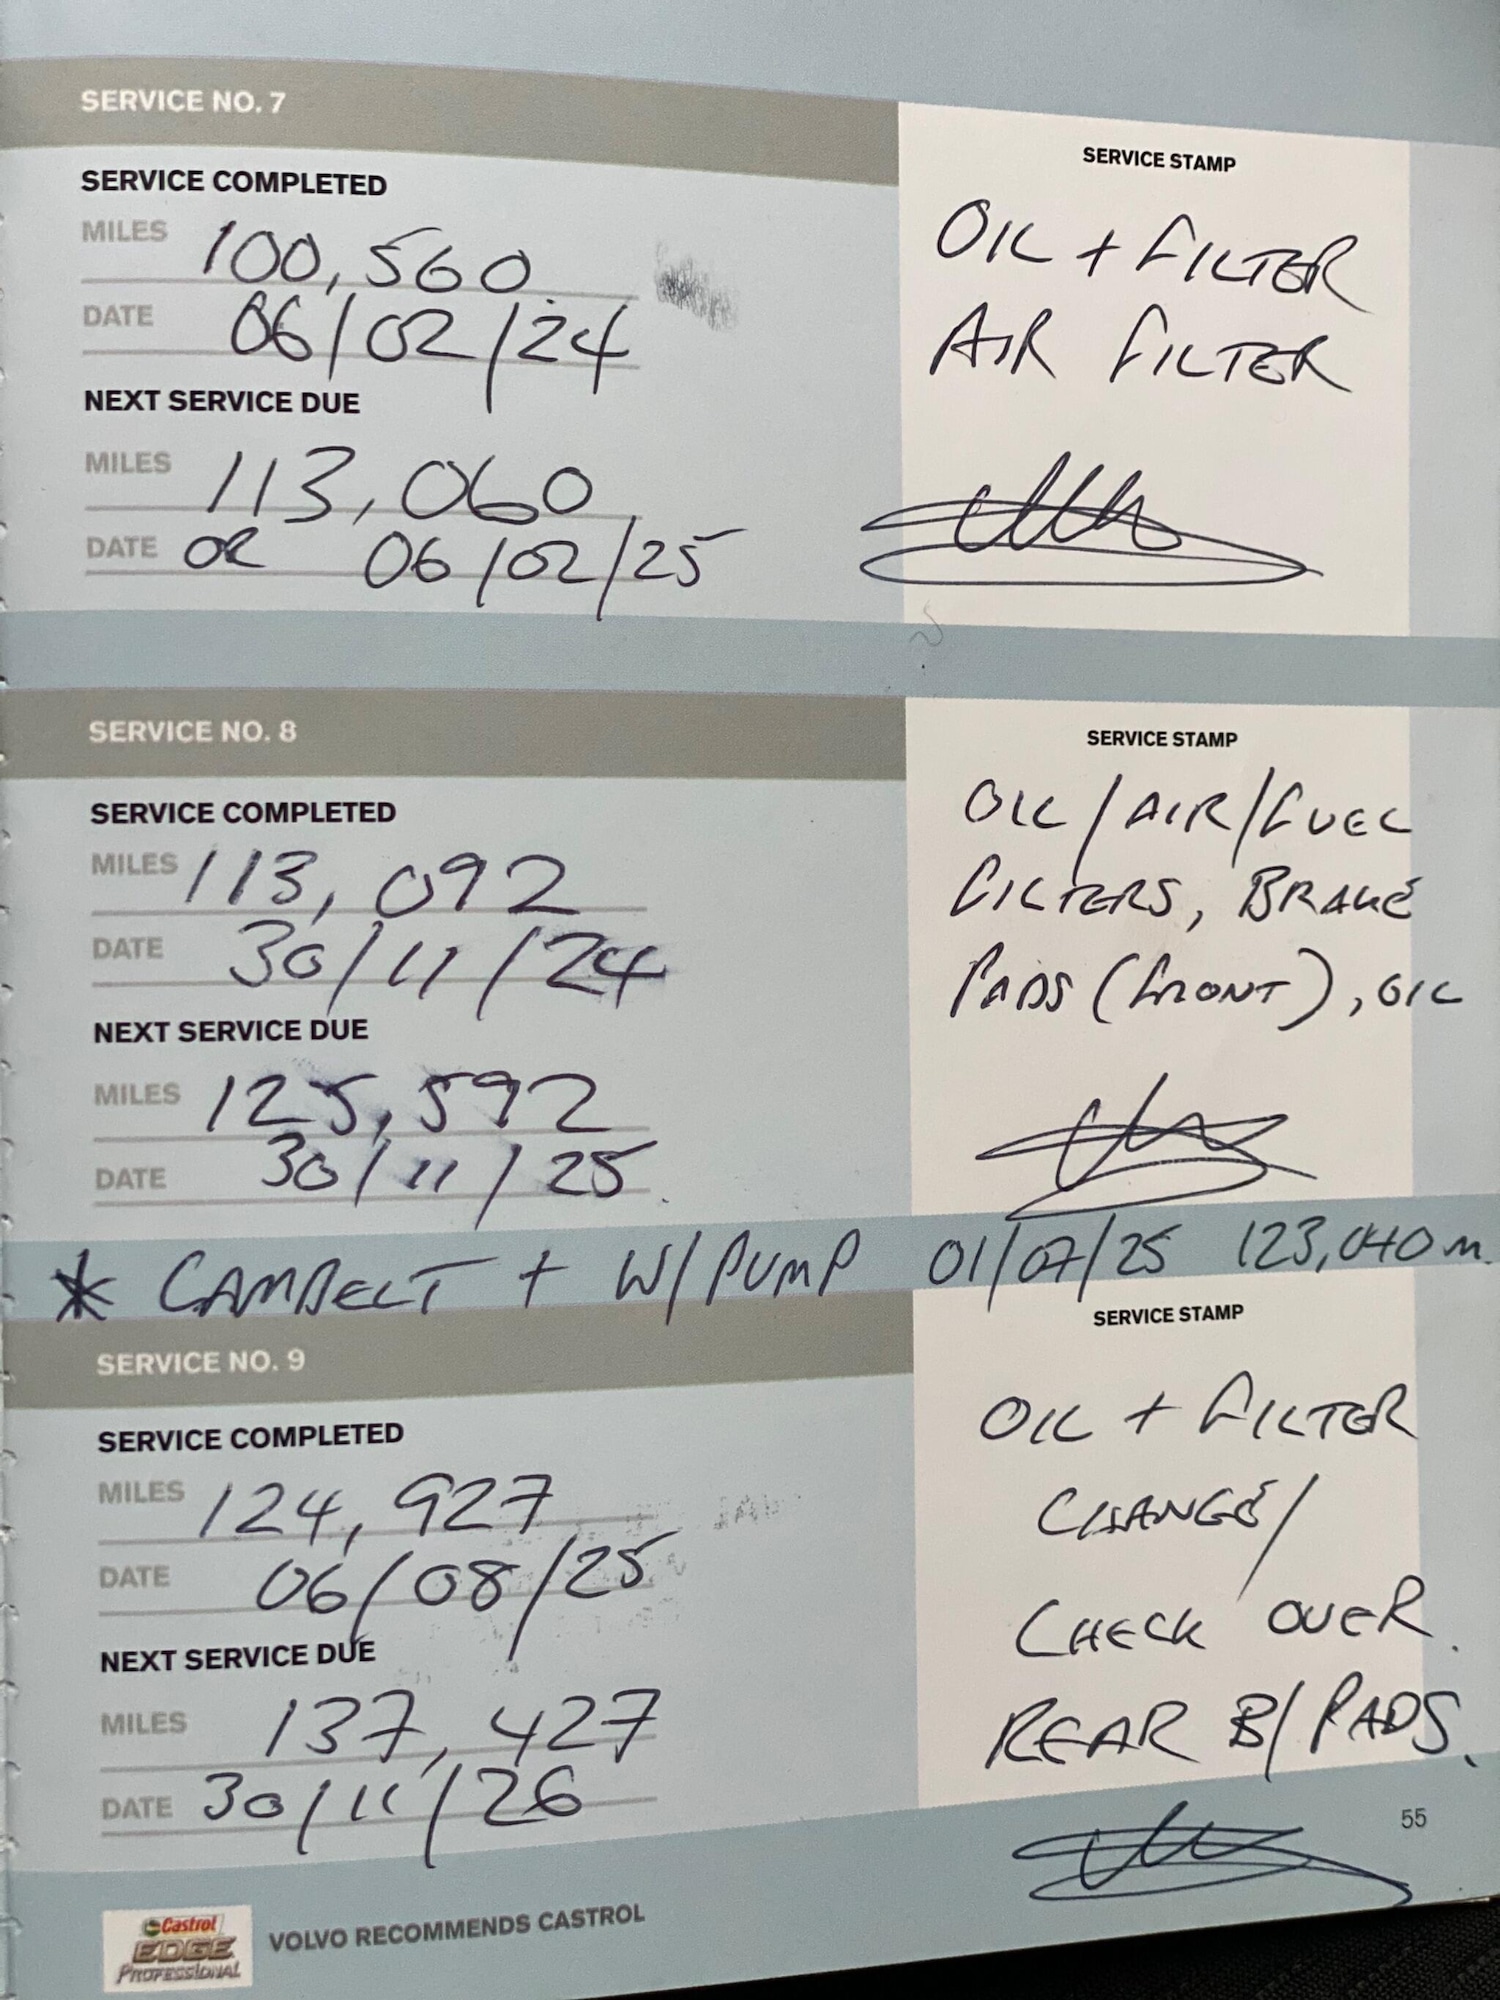 SERVICE NO. 7
SERVICE STAMP
SERVICE COMPLETED
MILES 100,560
DATE 06/02/24
OIL + FILTER
AIR FILTER
NEXT SERVICE DUE
MILES 113,060
DATE OR 06/02/25
SERVICE NO. 8
SERVICE STAMP
SERVICE COMPLETED
MILES 113,092
DATE 30/11/24
OIL/AIR/FUEL
FILTERS, BRAKE
PADS (FRONT), OIL
NEXT SERVICE DUE
MILES 125,592
DATE 30/11/25
* CAMBELT + W/PUMP 01/07/25 123,040 m.
SERVICE NO. 9
SERVICE STAMP
SERVICE COMPLETED
MILES 124,927
DATE 06/08/25
OIL + FILTER
CHANGE/
CHECK OVER.
REAR B/PADS.
NEXT SERVICE DUE
MILES 137,427
DATE 30/11/26
55
Castrol
EDGE
PROFESSIONAL
VOLVO RECOMMENDS CASTROL